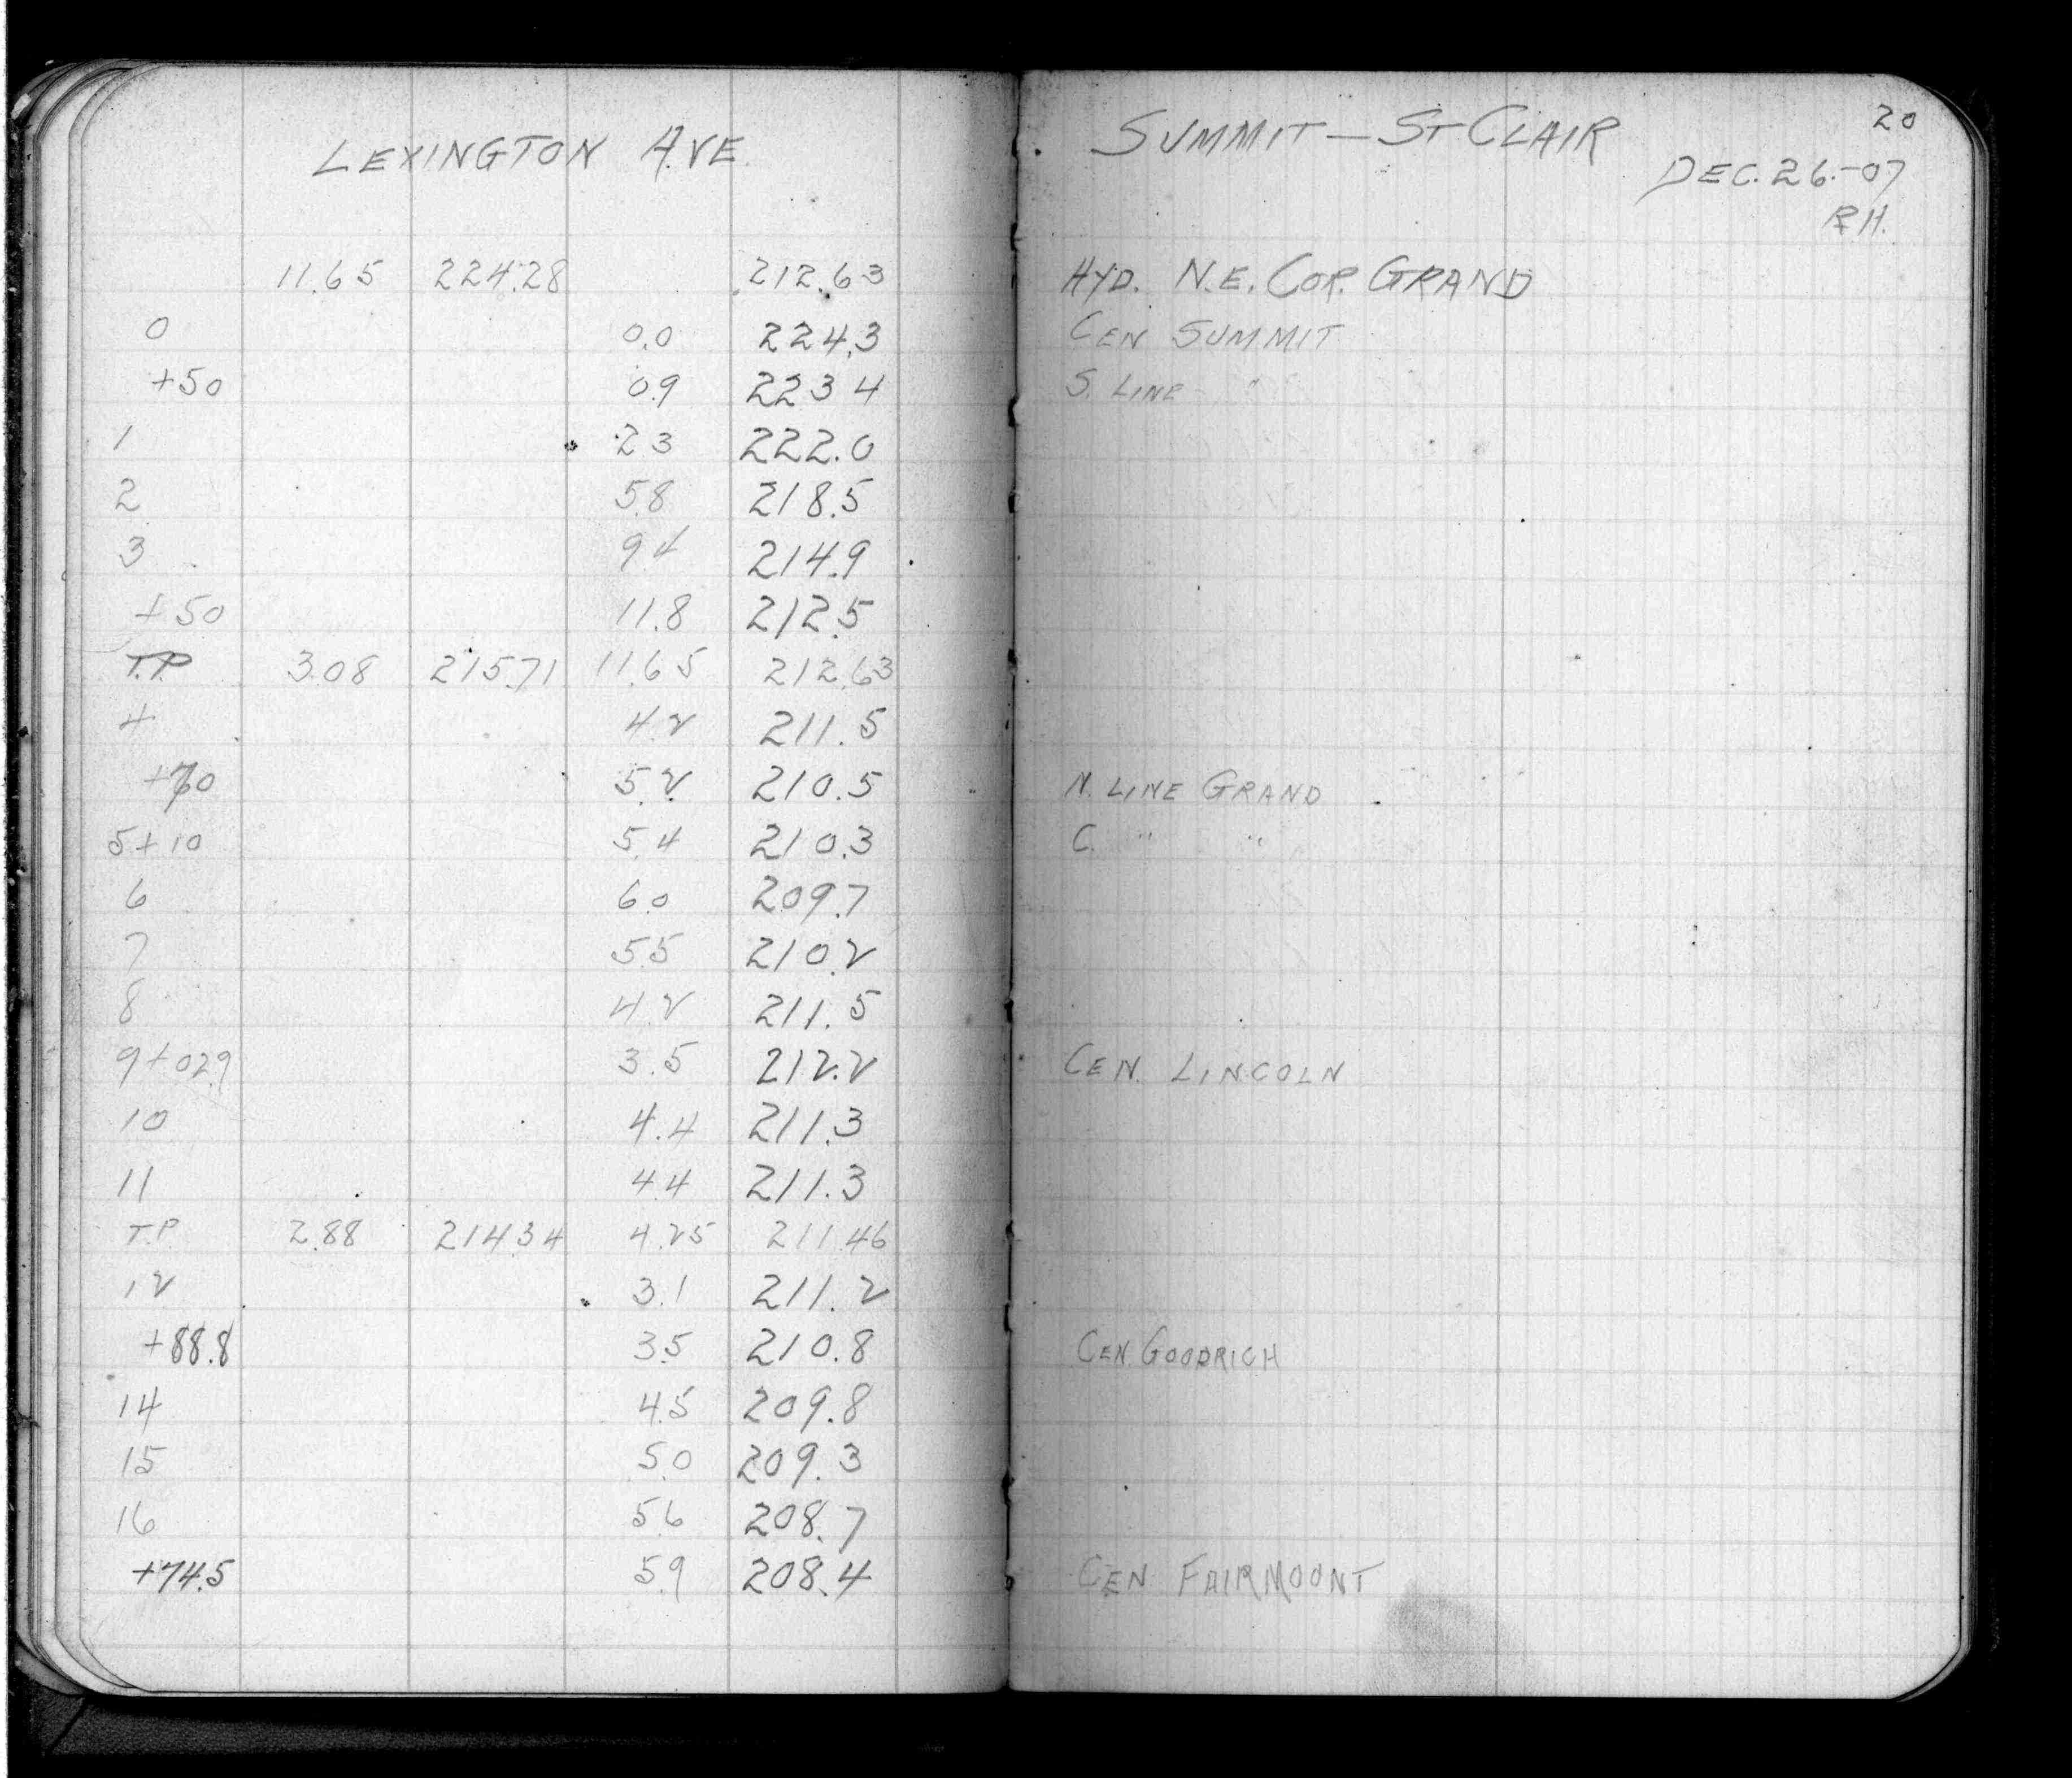 LEXINGTON AVE. SUMMIT — ST CLAIR 20
DEC. 26.-07
R.H.
11.65 224.28 212.63 HYD. N.E. COR. GRAND
0 0.0 224.3 CEN SUMMIT
+50 0.9 223 4 S. LINE "
1 2 3 222.0
2 5.8 218.5
3 9 4 214.9
+50 11.8 212.5
T.P. 3.08 215.71 11.65 212.63
4 4.2 211.5
+70 5.2 210.5 N. LINE GRAND
5+10 5.4 210.3 C. " "
6 6.0 209.7
7 5.5 210.2
8 4.2 211.5
9+02.9 3.5 212.2 CEN. LINCOLN
10 4.4 211.3
11 4.4 211.3
T.P 2.88 214.34 4.25 211.46
12 3.1 211.2
+88.8 3.5 210.8 CEN. GOODRICH
14 4.5 209.8
15 5.0 209.3
16 5.6 208.7
+74.5 5.9 208.4 CEN FAIRMOUNT